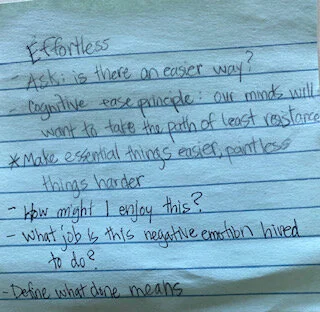 Effortless
- Ask: is there an easier way?
- Cognitive ease principle: our minds will
want to take the path of least resistance
* Make essential things easier, pointless
things harder
- How might I enjoy this?
- What job is this negative emotion hired
to do?
- Define what done means